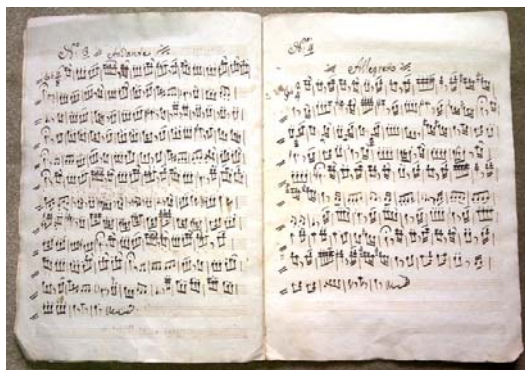 Nº 3 Andante
Nº 4
Allegreto